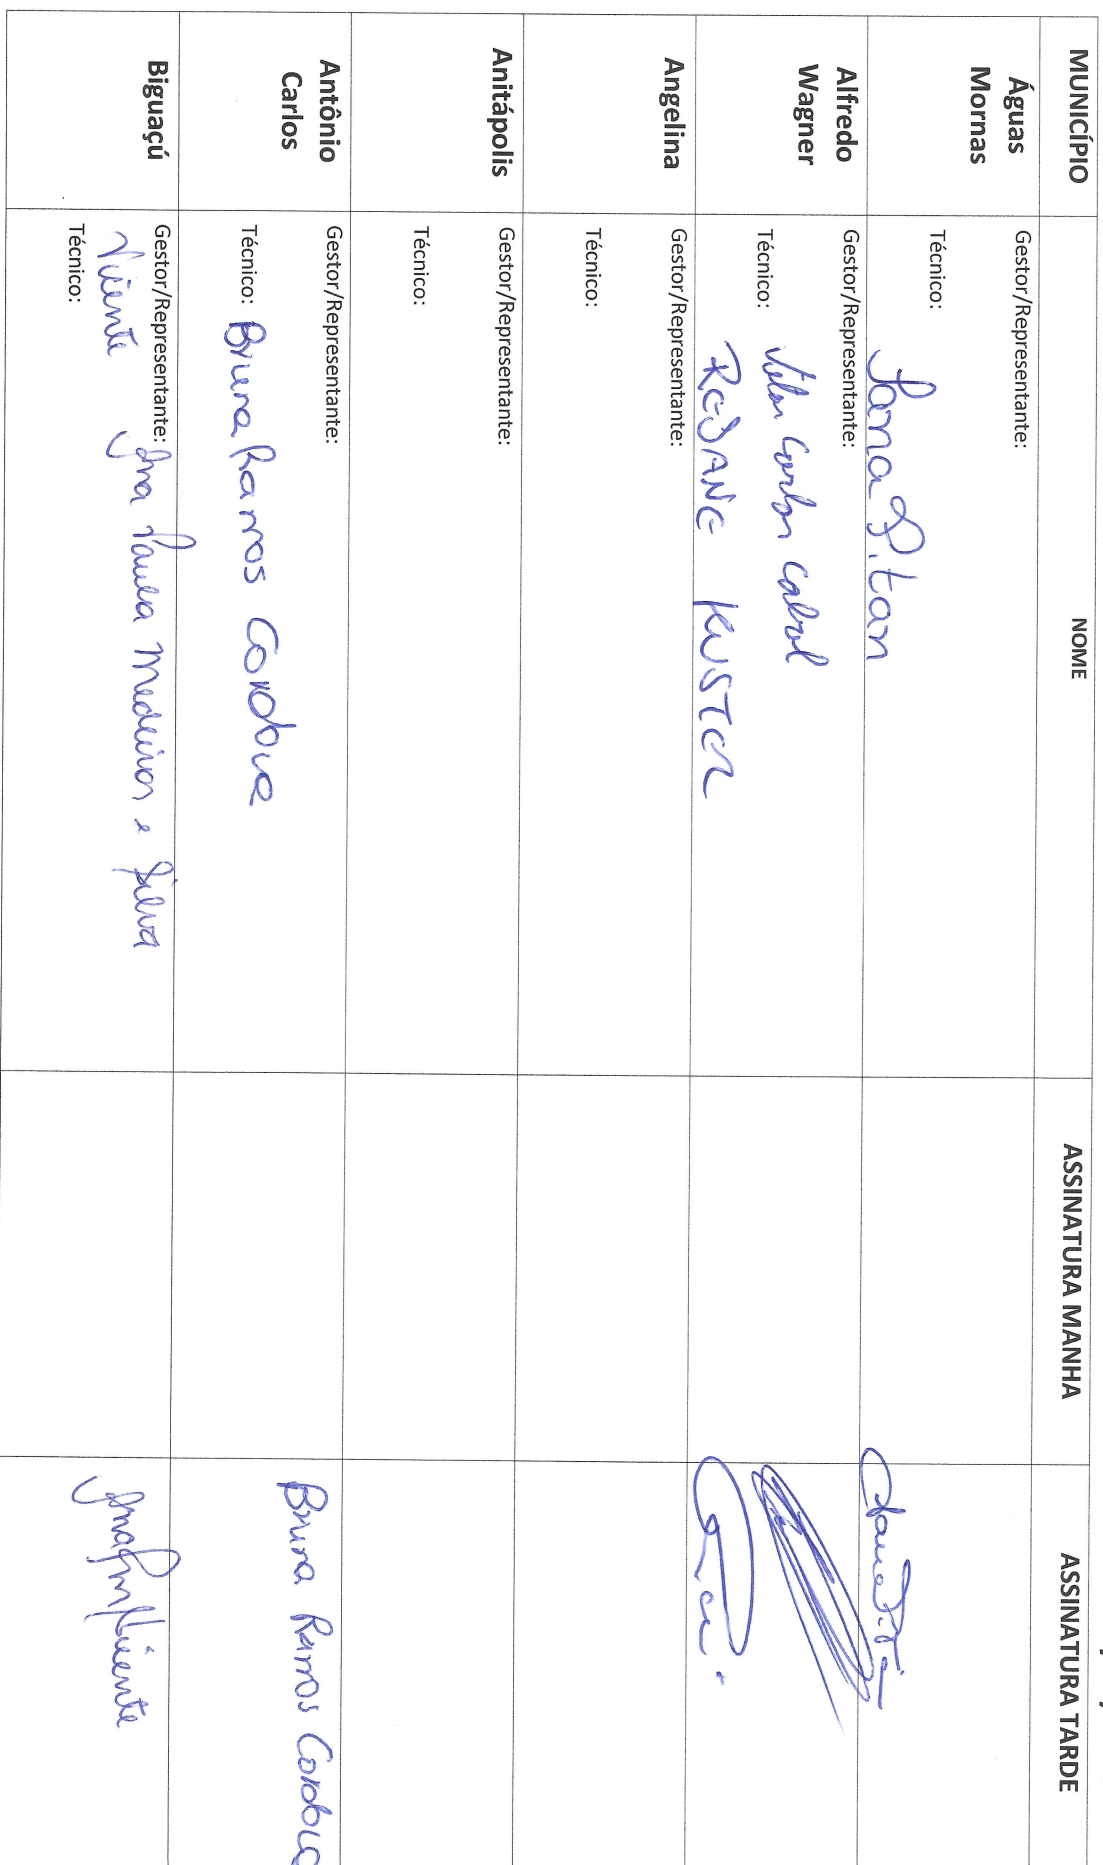 MUNICÍPIO NOME ASSINATURA MANHA ASSINATURA TARDE
Águas
Mornas
Gestor/Representante:
Técnico:
Alfredo
Wagner
Gestor/Representante:
Carlos Cabral
Técnico:
REJANE KUSTER
Angelina
Gestor/Representante:
Técnico:
Anitápolis
Gestor/Representante:
Técnico:
Antônio
Carlos
Gestor/Representante:
Técnico: Bruna Ramos Cordova
Bruna Ramos Cordova
Biguaçú
Gestor/Representante: Ana Paula Medeiros e Silva
Vicente
Técnico: